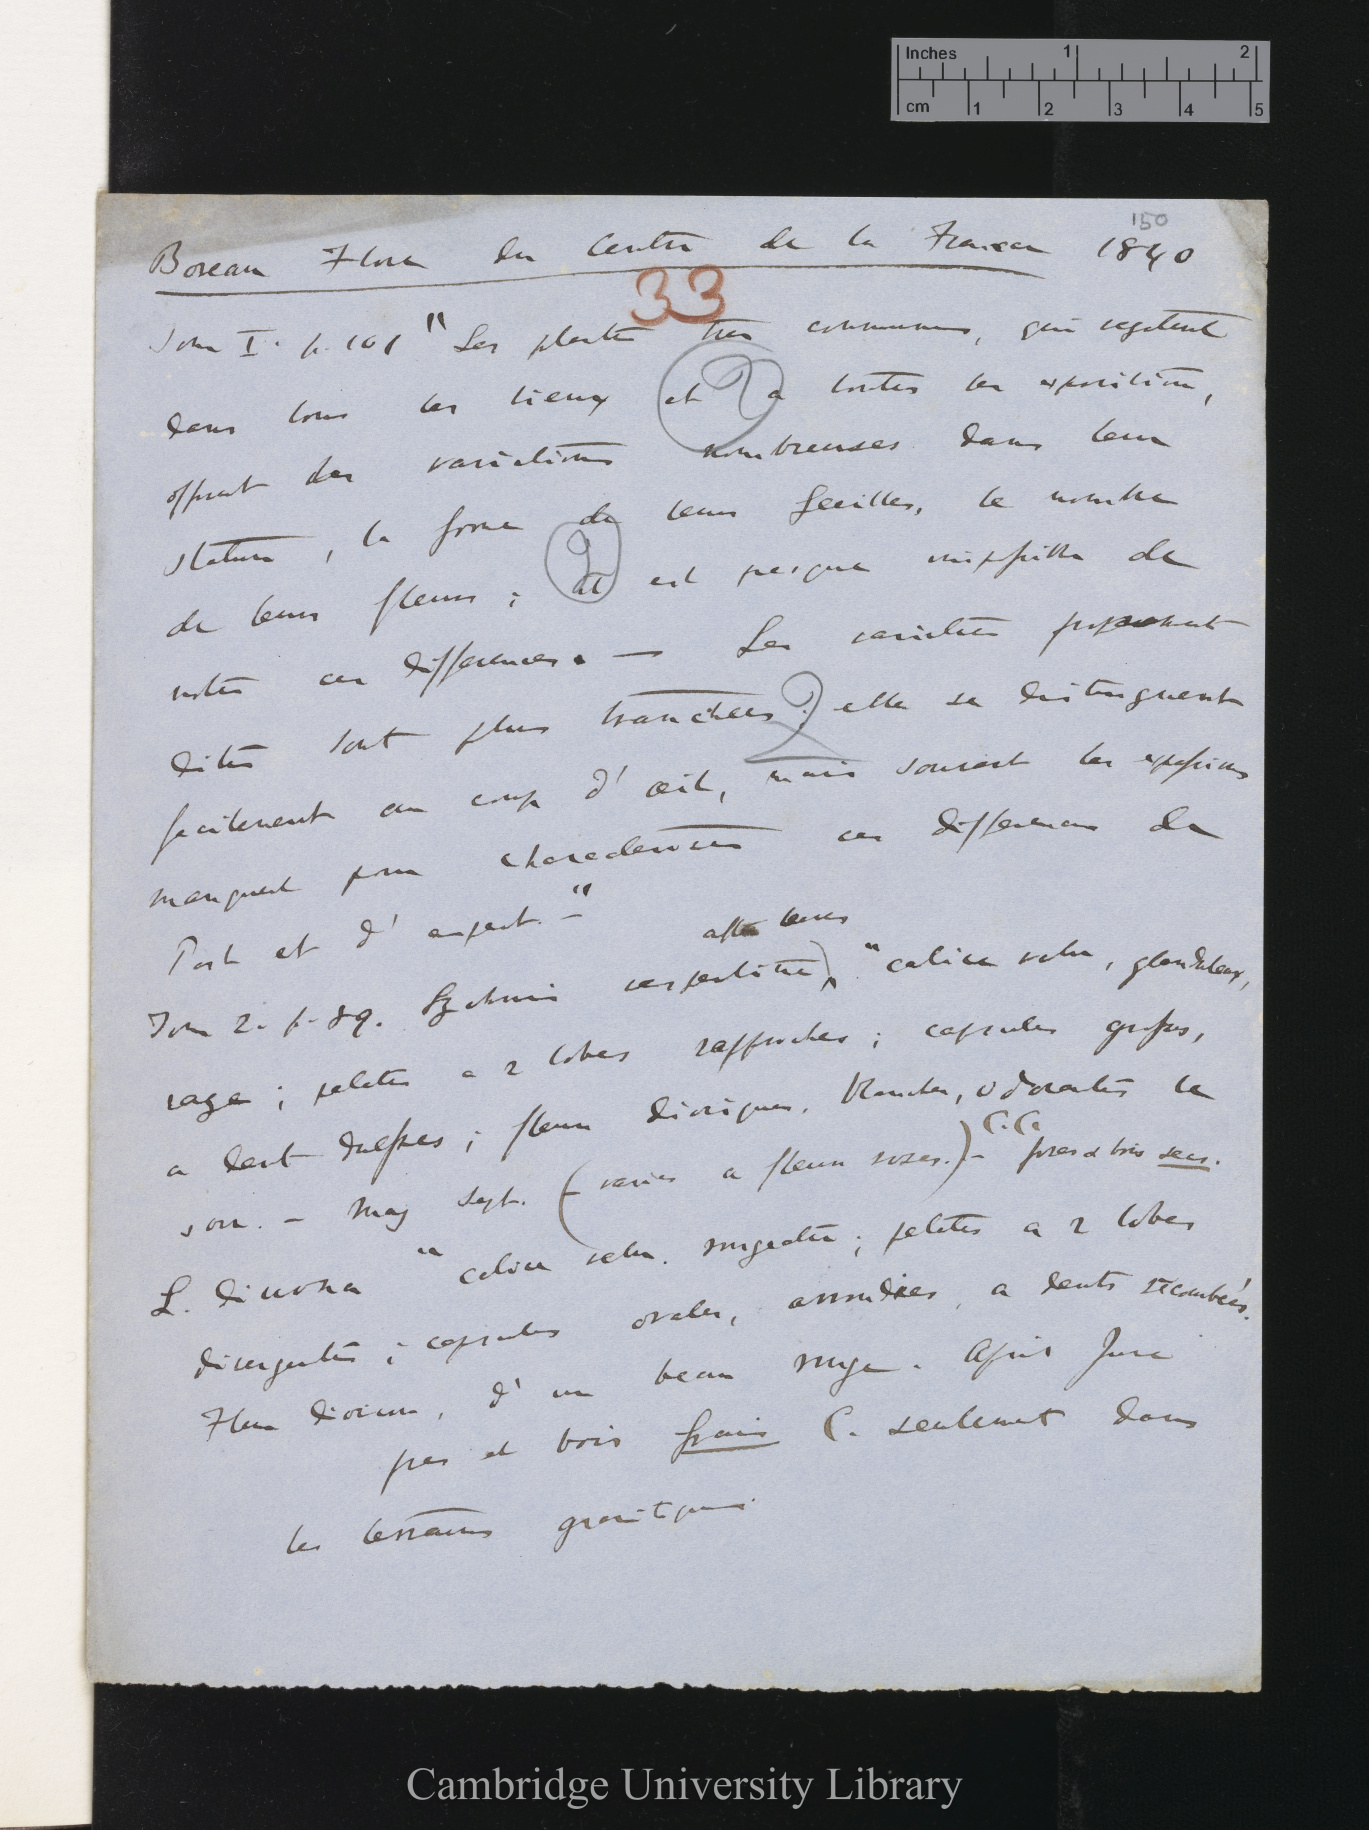 Inches 1 2
cm 1 2 3 4 5
150
Boreau Flora du Centre de la France 1840
33
Tom I. p. 101 "Les plantes tres communes, qui vegetent
dans tous les lieux et a toutes les expositions,
offrent des variations nombreuses dans leur
stature, la forme de leurs feuilles, le nombre
de leurs fleurs; il est presque impossible de
noter ces differences. — Les varietes proprement
dites sont plus tranchees; elles se distinguent
facilement au coup d'oeil, mais souvent les expressions
manquent pour characteriser ces differences de
Port et d'aspect. —"
after leaves
Tom 2. p. 89. Lychnis vespertina, "calice velu, glanduleux,
; petales a 2 lobes rapproches; capsules grosses,
a dents dressees; fleurs dioiques, blanches, odorantes le
soir. — May Sept. (varies a fleurs roses.) — C.C. pres & bois secs.
L. diurna "calice velu. rougeatre; petales a 2 lobes
divergentes; capsules ovales, arrondies, a dents recourbées.
Fleur dioicum, d'un beau rouge. April June
pres et bois frais C. seulement dans
les terrains granitiques.
Cambridge University Library